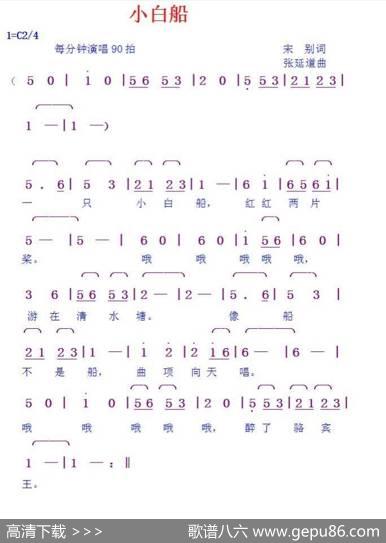 小白船
1=C2/4
每分钟演唱90拍 宋 别词
张延道曲
（ 5 0 | i 0 | 56 53 | 2 0 | 53 53 | 21 23 |
1 — | 1 —）
5 . 6 | 5 3 | 21 23 | 1 — | 6 i | 65 6i |
一 只 小白船，红红两片
5 — | 5 — | 6 0 | 6 0 | 6 0 | i 56 | 6 0 |
桨。 哦 哦 哦哦哦，
3 6 | 56 53 | 2 — | 2 — | 5. 6 | 5 3 |
游在清水塘。 像 船
21 23 | 1 — | i 2 | 2 i6 | 6 — | 6 — |
不是船，曲项向天唱。
5 0 | i 0 | 56 53 | 2 0 | 53 53 | 21 23 |
哦 哦 哦哦哦，醉了骆宾
1 — | 1 — :‖
王。
高清下载 >>> 歌谱八六 www.gepu86.com